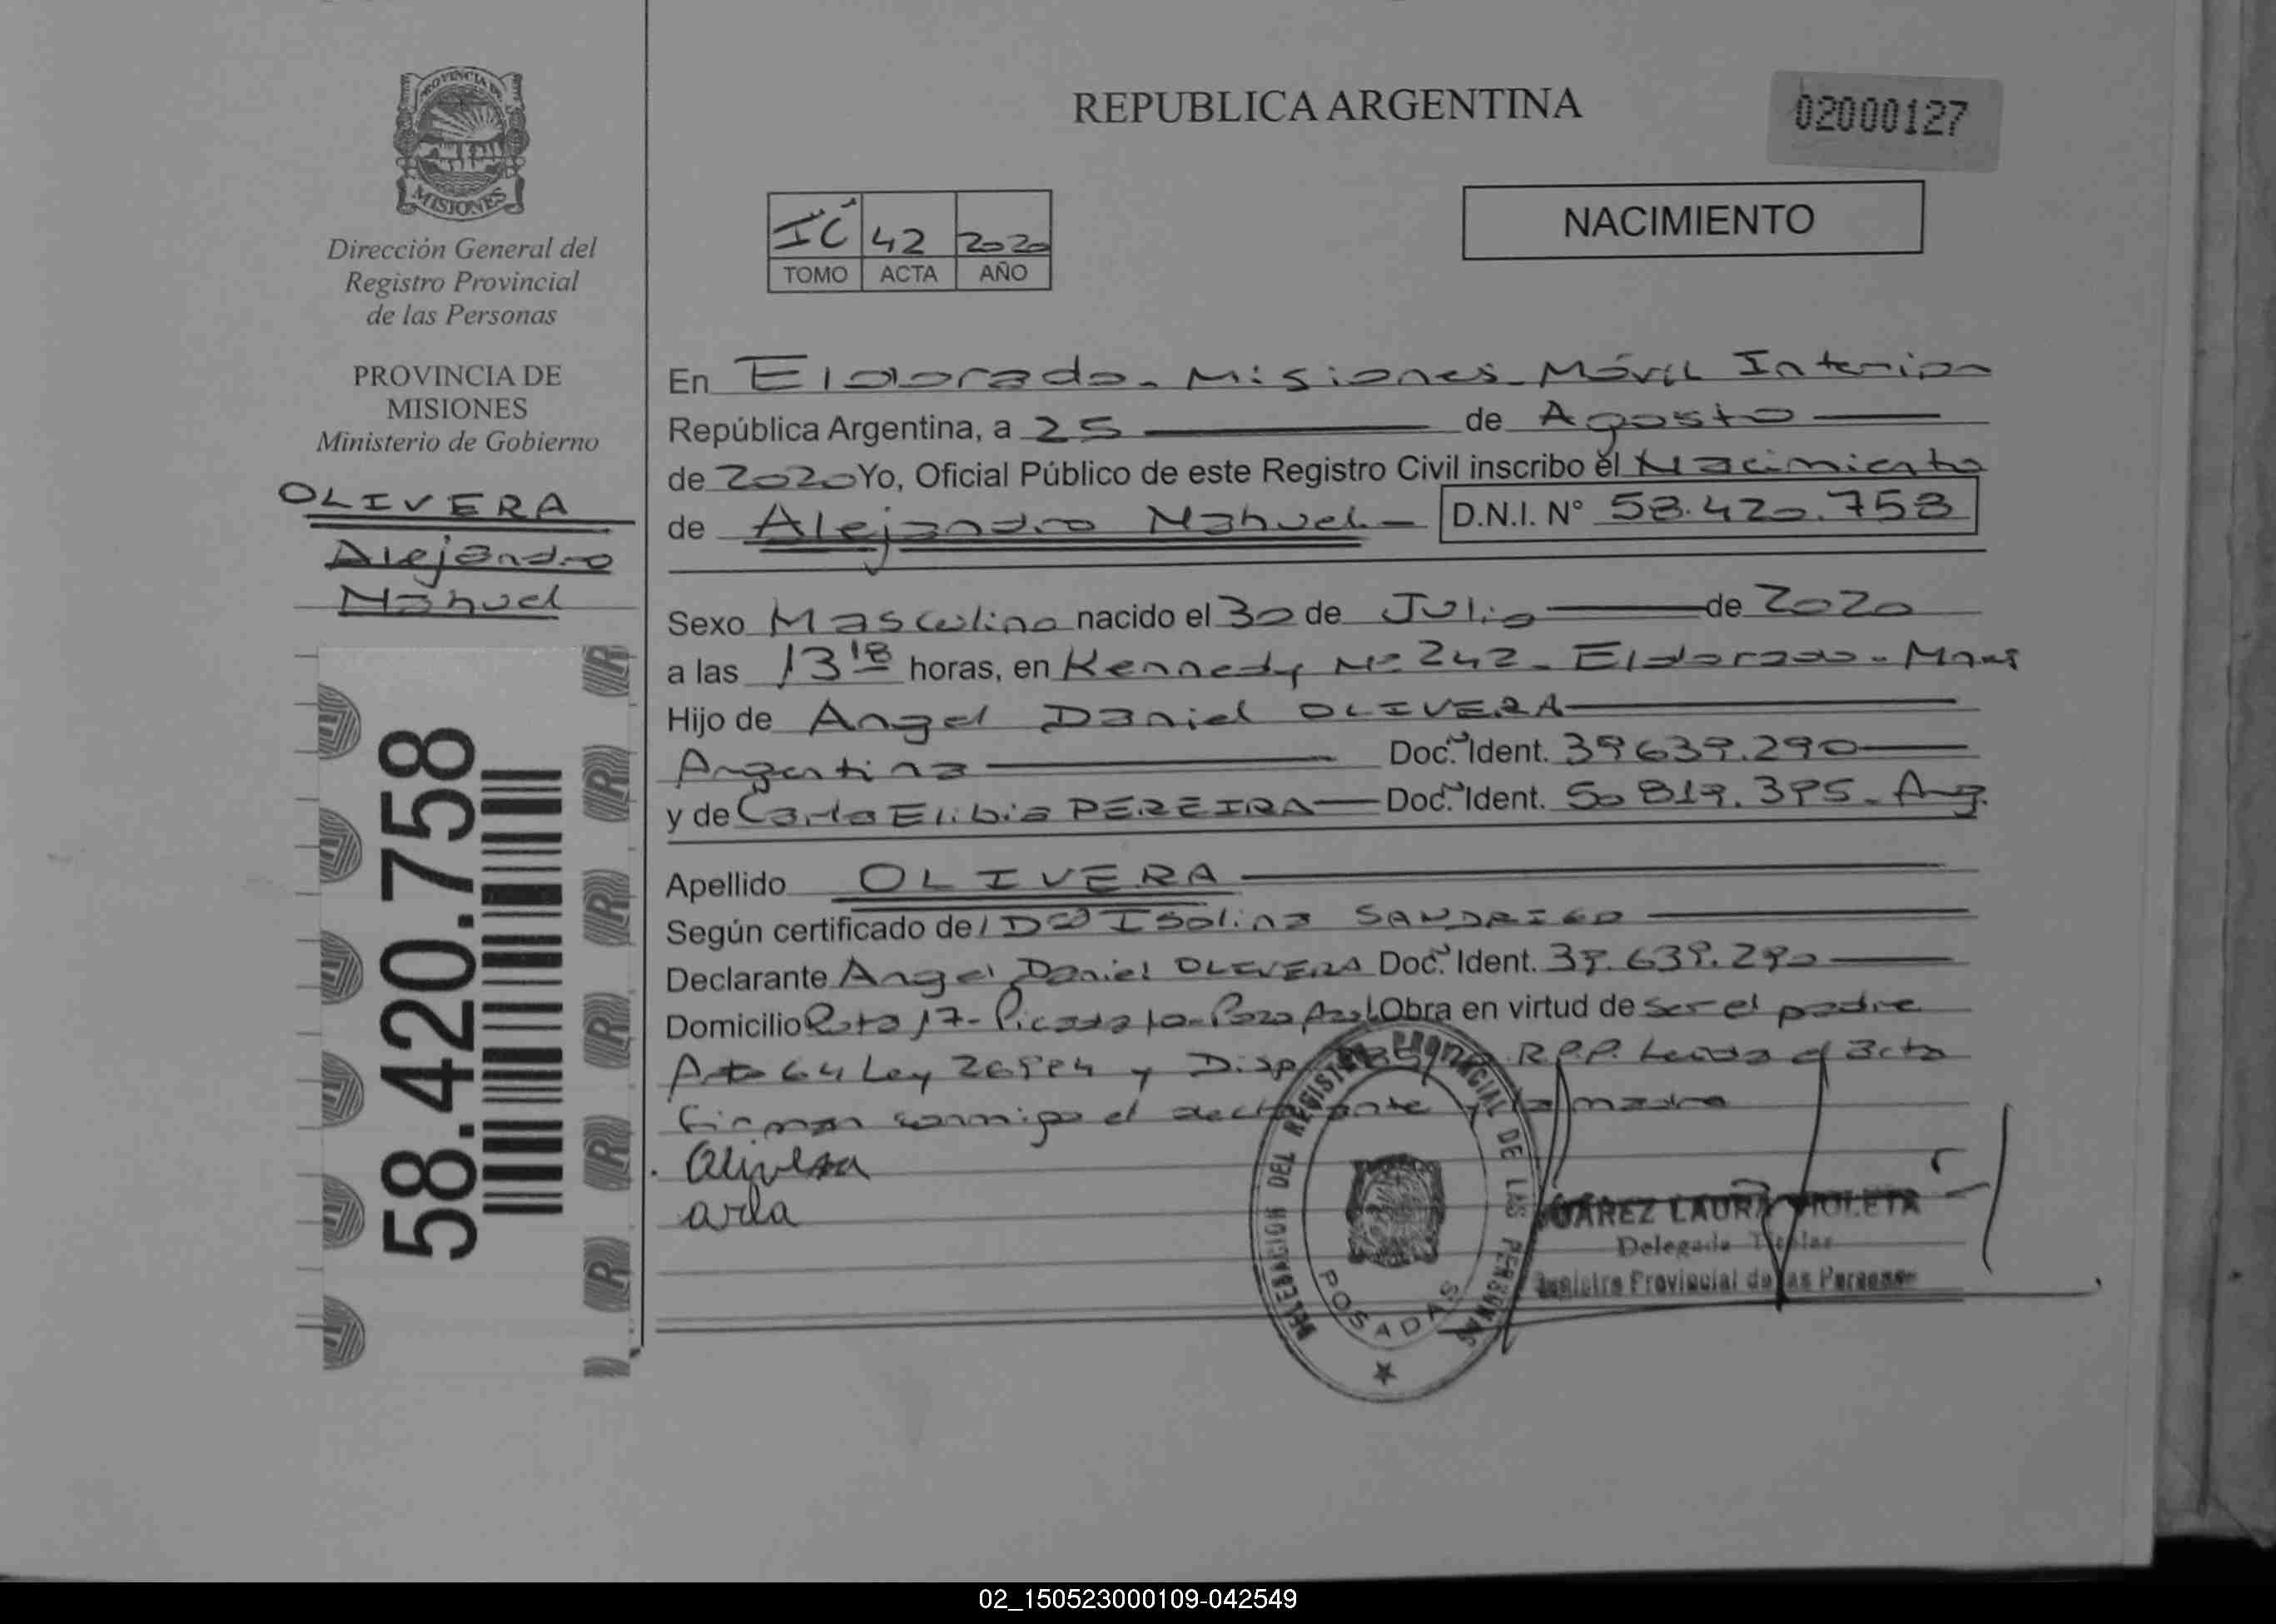 PROVINCIA DE
MISIONES
Dirección General del
Registro Provincial
de las Personas
PROVINCIA DE
MISIONES
Ministerio de Gobierno
OLIVERA
Alejandro
Nahuel
58.420.758
REPUBLICA ARGENTINA
02000127
NACIMIENTO
42 2020
TOMO ACTA AÑO
En Eldorado - Misiones - Móvil Interior
República Argentina, a 25 de Agosto
de 2020 Yo, Oficial Público de este Registro Civil inscribo el Nacimiento
de Alejandro Nahuel - D.N.I. N° 58.420.758
Sexo Masculino nacido el 30 de Julio de 2020
a las 13 18 horas, en Kennedy Nº 242 - Eldorado - Mnes
Hijo de Angel Daniel OLIVERA
Argentina Doc. Ident. 39639.290
y de Carla Elibia PEREIRA Doc. Ident. 50819.395 - Arg.
Apellido OLIVERA
Según certificado de Isolina SANDRIGO
Declarante Angel Daniel OLIVERA Doc. Ident. 39.639.290
Domicilio Ruta 17 - Picada 10 - Pozo Azul Obra en virtud de ser el padre
Art 64 Ley 26994 y Disp R.P.P. Leida el acta
firman conmigo el declarante y la madre
Olivera
arla
DELEGACION DEL REGISTRO PROVINCIAL DE LAS PERSONAS
POSADAS
LAURA VIOLETA
Delegada Titular
Registro Provincial de las Personas
02_150523000109-042549